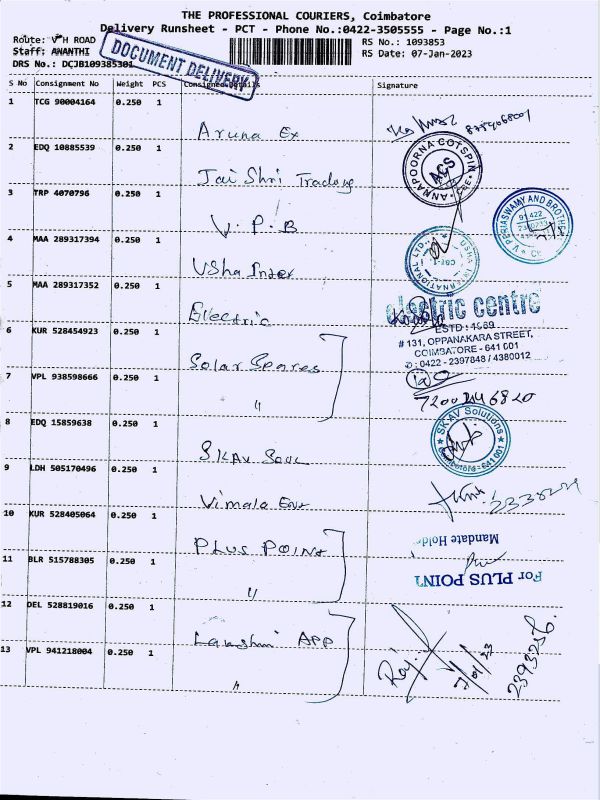 THE PROFESSIONAL COURIERS, Coimbatore
Delivery Runsheet - PCT - Phone No.:0422-3505555 - Page No.:1
Route: V H ROAD
RS No.: 1093853
Staff: ANANTHI
RS Date: 07-Jan-2023
DRS No.: DCJB109385301
DOCUMENT DELIVERY
S No Consignment No Weight PCS Consignee Details Signature
1 TCG 90004164 0.250 1
Aruna Ex
2 EDQ 10885539 0.250 1
ANNAPOORNA COTSPIN
ACS
CBE
Jai Shri Trading
3 TRP 4070796 0.250 1
V. PERIASWAMY AND BROTHER
V.P.B
4 MAA 289317394 0.250 1
USHA INTERNATIONAL LTD.,
CBE-1
Usha Inter
5 MAA 289317352 0.250 1
Electric
electric centre
ESTD : 1989
# 131, OPPANAKARA STREET,
COIMBATORE - 641 001
: 0422 - 2397848 / 4380012
6 KUR 528454923 0.250 1
Solar Spares
7 VPL 938598666 0.250 1
"
8 EDQ 15859638 0.250 1
SKAV Solutions
Coimbatore-641 001
SKAV Soul
9 LDH 505170496 0.250 1
Vimala Ent
10 KUR 528405064 0.250 1
PLUS POINT
Mandate Holder
11 BLR 515788305 0.250 1
For PLUS POINT
"
12 DEL 528819016 0.250 1
Lakshmi APP
13 VPL 941218004 0.250 1
Raj
7/01/23
2393256
"